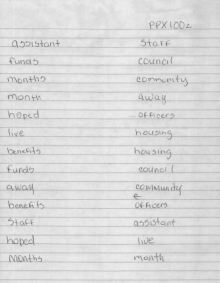 PPX1002
assistant staff
funds council
months community
month away
hoped officers
live housing
benefits housing
funds council
away community
benefits officers
staff assistant
hoped live
months month